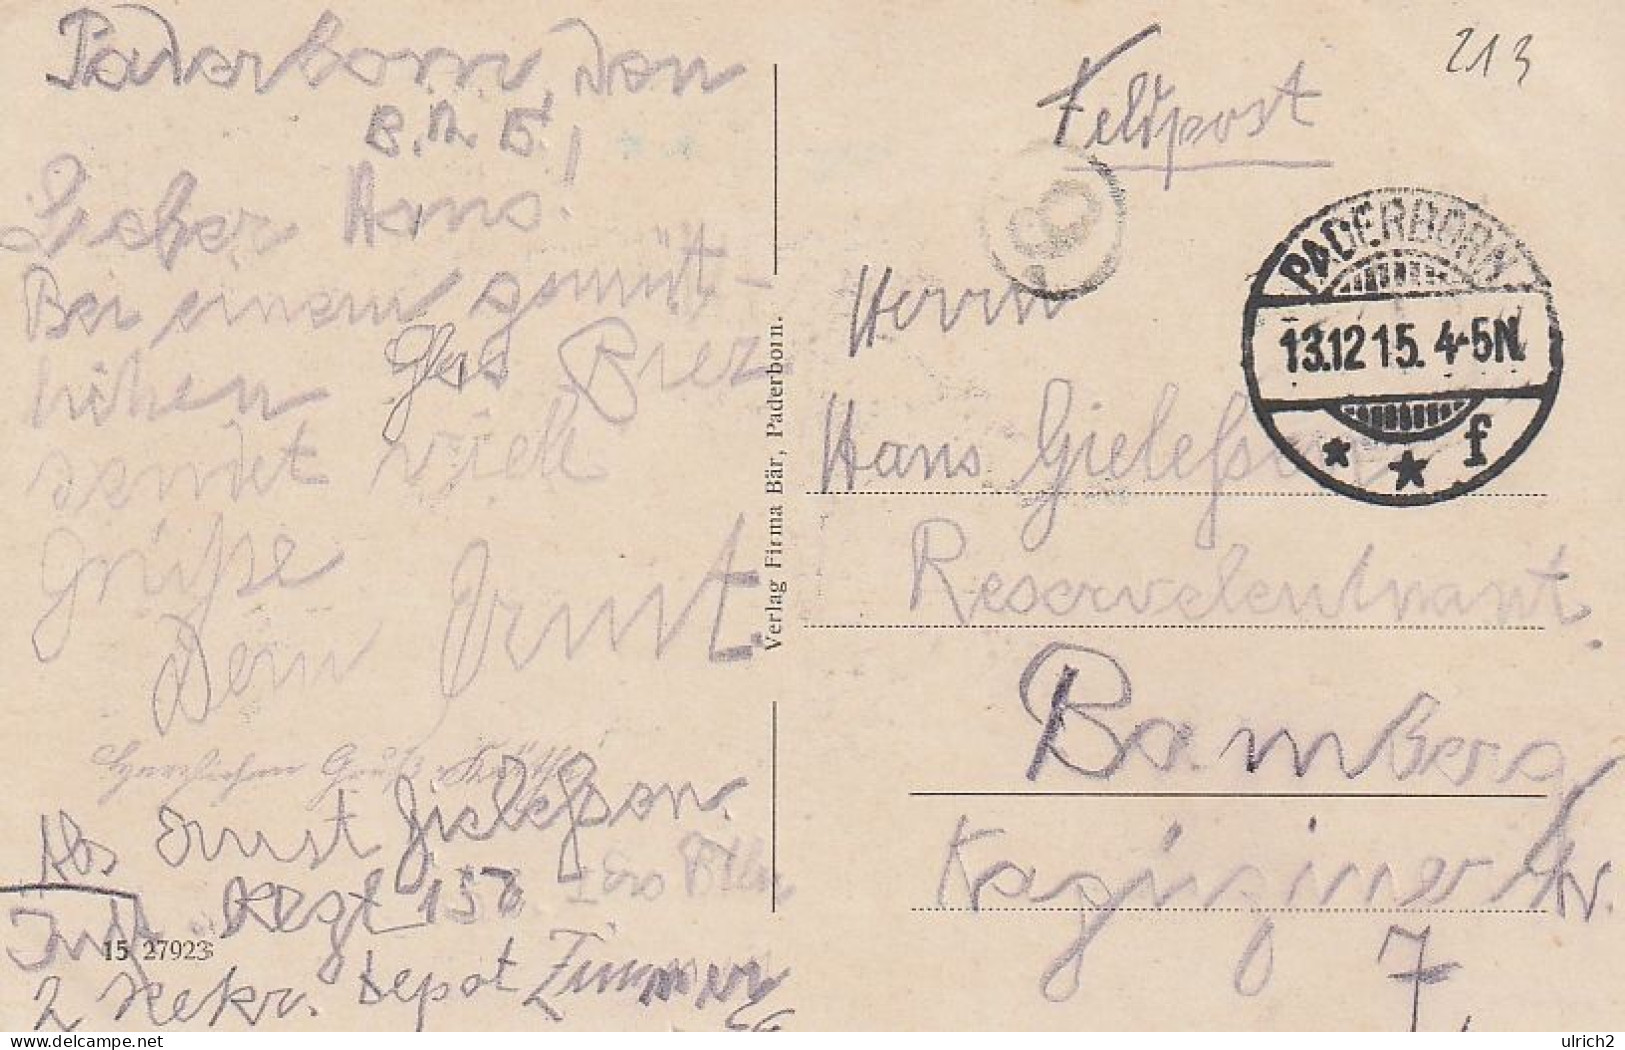 Paderborn, den
Lieber Hans!
Bei einem gemüt-
lichen Glas Bier
sendet viele
Grüße
Dein Ernst.
Abs Ernst Gielefsen.
Inft Regt 158
2 Rekr. Depot Zimmer
15 27923
Verlag Firma Bär, Paderborn.
213
Feldpost
PADERBORN
13.12 15. 4-5N.
* * f
Herrn
Hans Gielefsen
Reserveleutnant.
Bamberg
Str.
7
ulrich2